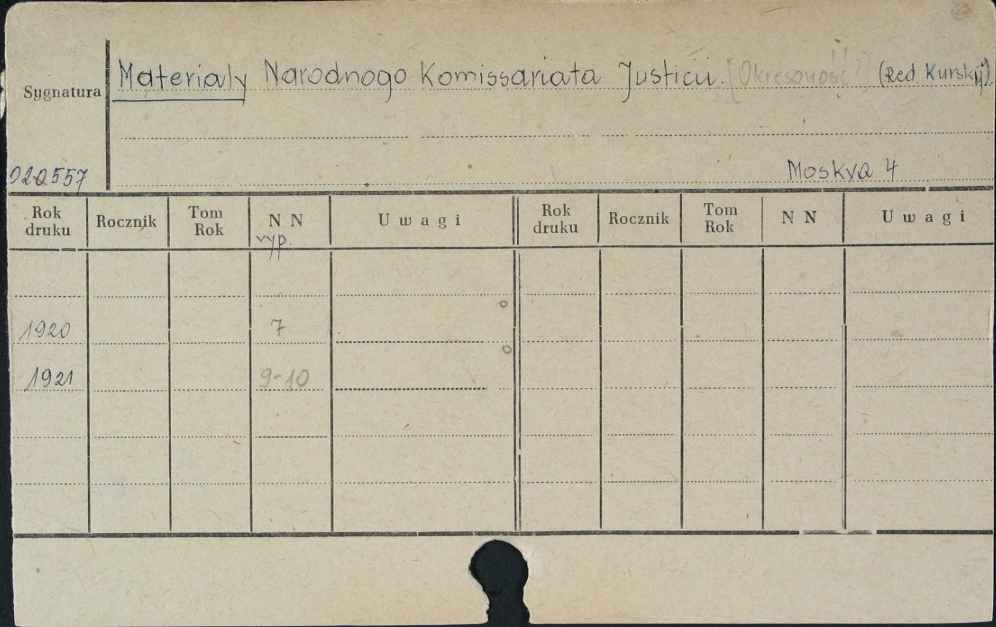 Materialy Narodnogo Komissariata Justicii. [Okresowość?] (Red Kurskij)
Sygnatura
020557
Moskva 4
Rok druku Rocznik Tom Rok N N Uwagi Rok druku Rocznik Tom Rok N N Uwagi
vyp.
1920 7
1921 9-10